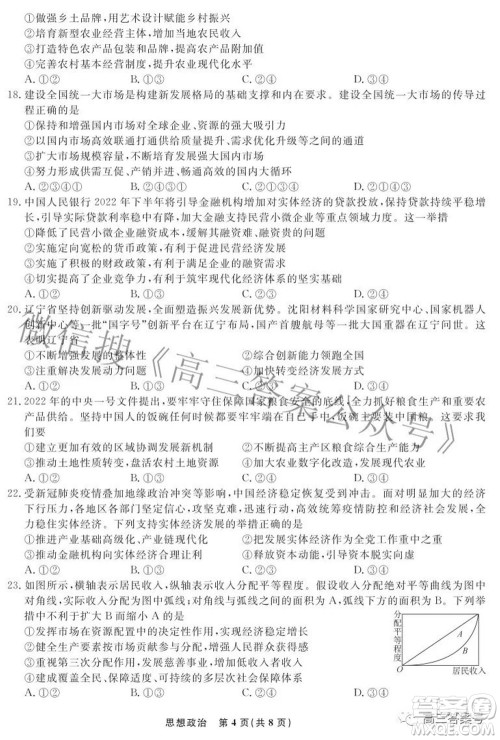 ①做强乡土品牌，用艺术设计赋能乡村振兴
②培育新型农业经营主体，增加当地农民收入
③打造特色农产品包装和品牌，提高产品附加值
④完善农村基本经营制度，提升农业现代化水平
A.①② B.①③ C.②④ D.③④
18.建设全国统一大市场是构建新发展格局的基础支撑和内在要求。建设全国统一大市场的传导过
程正确的是
①保持和增强强大市场对全球企业、资源的强大吸引力
②以国内市场高效联通打通供给质量提升、需求优化升级的动态平衡
③扩大市场规模容量，不断培育发展强大国内市场
④形成供需互促、产销并进、畅通高效的国内大循环
A.②③④① B.③②④① C.②④①③ D.③④②①
19.中国人民银行2022年下半年将引导金融机构增加对实体经济的贷款投放，保持贷款持续平稳增
长，引导实际贷款利率稳中有降，保持金融支持民营小微企业等重点领域力度。这一举措
①降低了民营小微企业融资成本，缓解其融资难、融资贵的问题
②实施定向宽松的货币政策，有利于促进民营经济发展
③实施了积极的财政政策，有利于满足企业的融资需求
④切实提高了企业竞争力，有利于筑牢现代化经济体系的坚实基础
A.①② B.①③ C.②④ D.③④
20.辽宁省坚持创新驱动发展，全面塑造振兴发展新优势。沈阳材料科学国家研究中心、国家机器人
创新中心等一批“国字号”创新平台在辽宁布局，国产首艘航母等一批大国重器在辽宁问世。这
表明辽宁省
①不断增强发展的整体性 ②综合创新能力领跑全国
③注重解决发展动力问题 ④加快转变经济发展方式
A.①② B.①③ C.②④ D.③④
21.2022年的中央一号文件提出，要牢牢守住保障国家粮食安全的底线，全力抓好粮食生产和重要农
产品供给。坚持中国人的饭碗任何时候都要牢牢端在自己手中，饭碗主要装中国粮。这要求我
们要
①建立更加有效的区域协调发展新机制 ②不断提高主产区粮食综合生产能力
③推动土地性质转变，盘活农村土地资源 ④加大农业数字化改造，发展现代农业
A.①② B.①③ C.②④ D.③④
22.受新冠肺炎疫情叠加地缘政治冲突等影响，中国经济稳定恢复受到冲击。面对明显加大的经济
下行压力，各地区各部门主动作为、应变克难，高效统筹疫情防控和经济社会发展，全力支持企
业复工复产、稳产满产。下列有利于经济持续稳定发展的举措正确的是
①推进产业链供应链优化升级 ②把经济发展作为全党工作重中之重
③推动金融机构向实体经济让利 ④充分发挥国内市场的支撑作用
A.①② B.①③ C.②④ D.③④
23.如图所示，横轴表示居民收入，纵轴表示收入分配平等程度。假设收入分配绝对平等为图中
对角线，实际收入分配为图中弧线；对角线与弧线之间的面积为A，弧线与直角边之间的面积为B。
下列不利于B面积缩小A的是
①发挥市场在资源配置中的决定性作用，激发经济活力
②健全生产要素按市场贡献参与分配，增加要素收入
③重视第三次分配作用，发展慈善事业，改善分配格局
④加大税收、社保、转移支付等调节力度，促进社会公平
A.①② B.①③ C.②④ D.③④
分配平等程度
A
B
居民收入
思想政治 第4页(共8页)
微信搜《高三答案公众号》
高三答案号